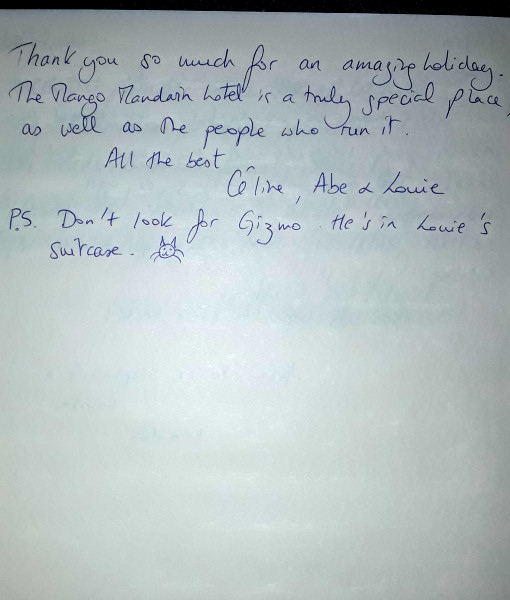 Thank you so much for an amazing holiday.
The Mango Mandarin hotel is a truly special place,
as well as the people who run it.
All the best
Céline, Abe & Louie
P.S. Don't look for Gizmo. He's in Louie's
suitcase.